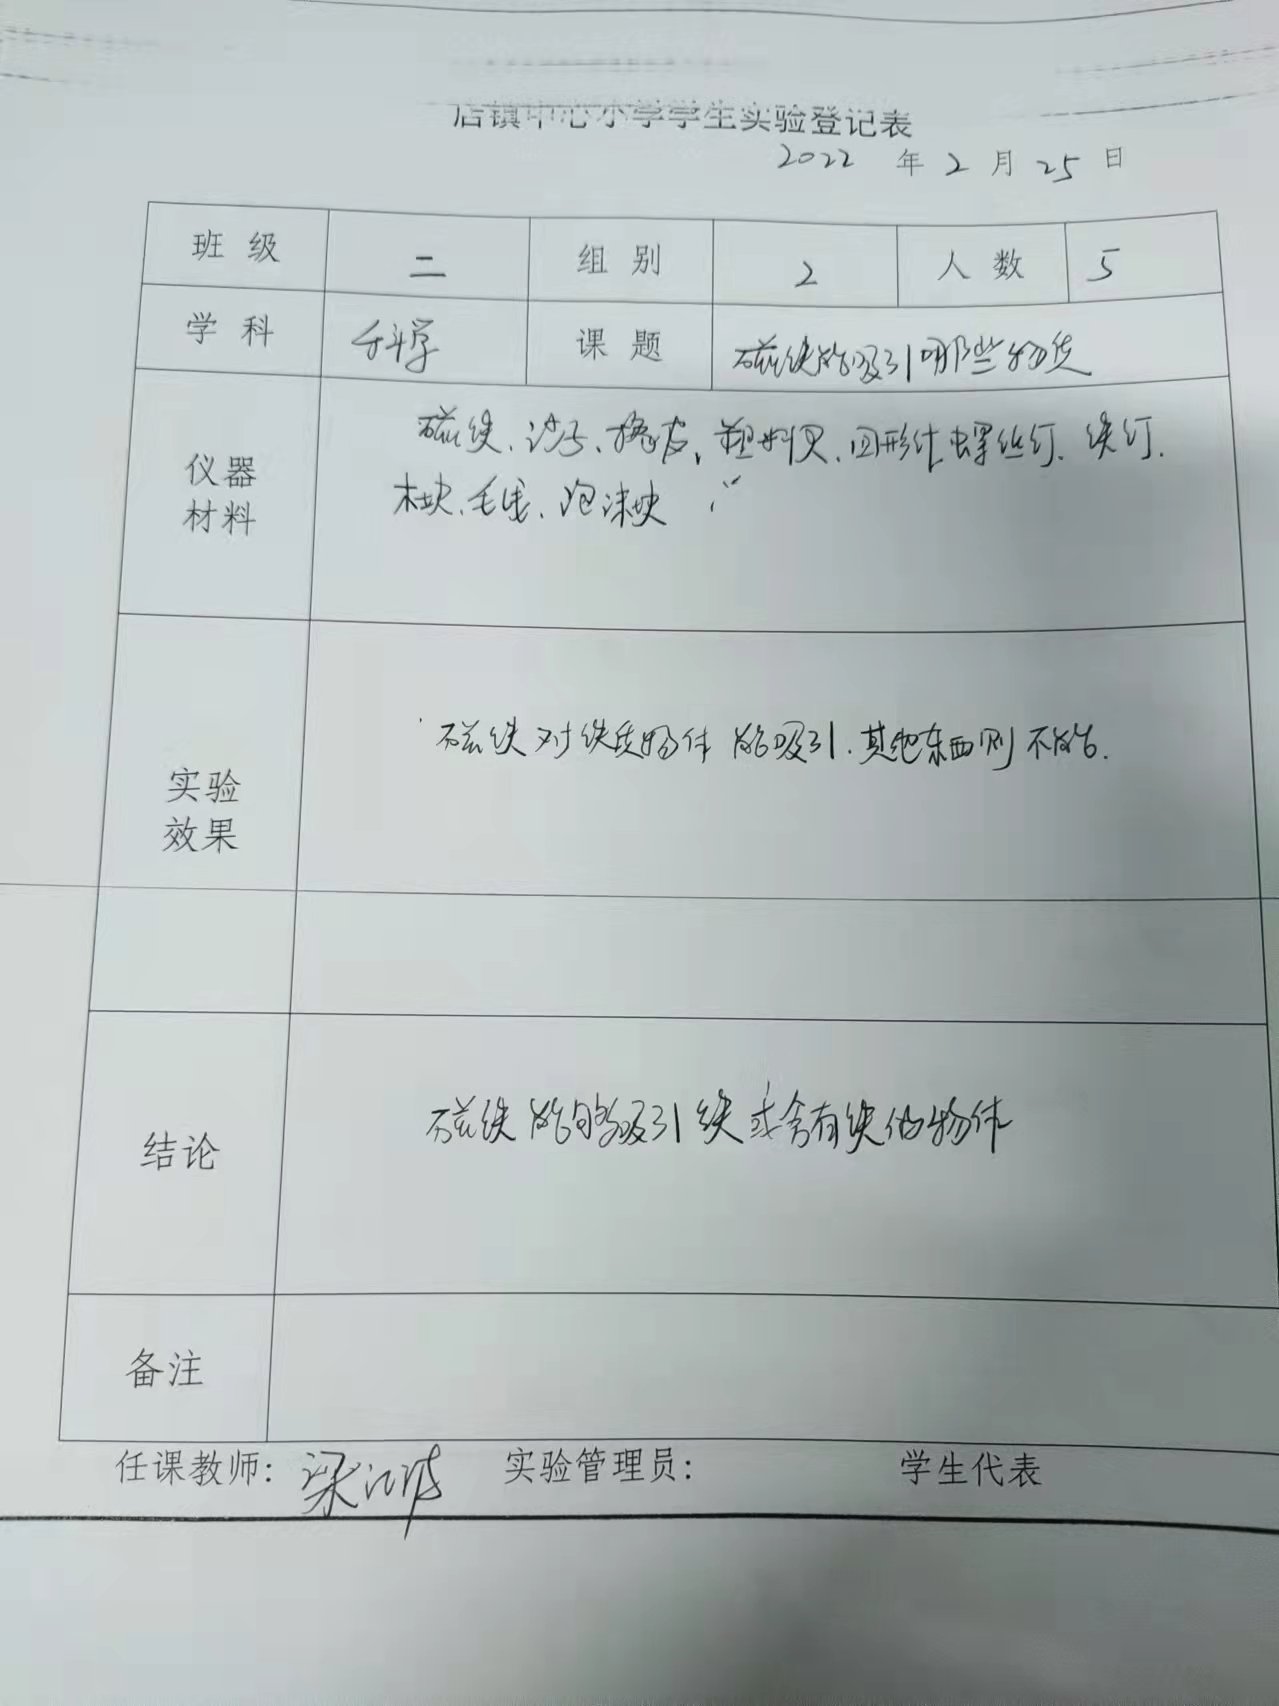 店镇中心小学学生实验登记表
2022 年 2 月 25 日
班级 二 组别 2 人数 5
学科 科学 课题 磁铁能吸引哪些物质
仪器材料
磁铁、沙子、橡皮、塑料尺、回形针、螺丝钉、铁钉、
木块、毛线、泡沫块
实验效果
磁铁对铁质物体能吸引、其他东西则不能.
结论
磁铁能够吸引铁或含有铁的物体
备注
任课教师: 梁 实验管理员: 学生代表